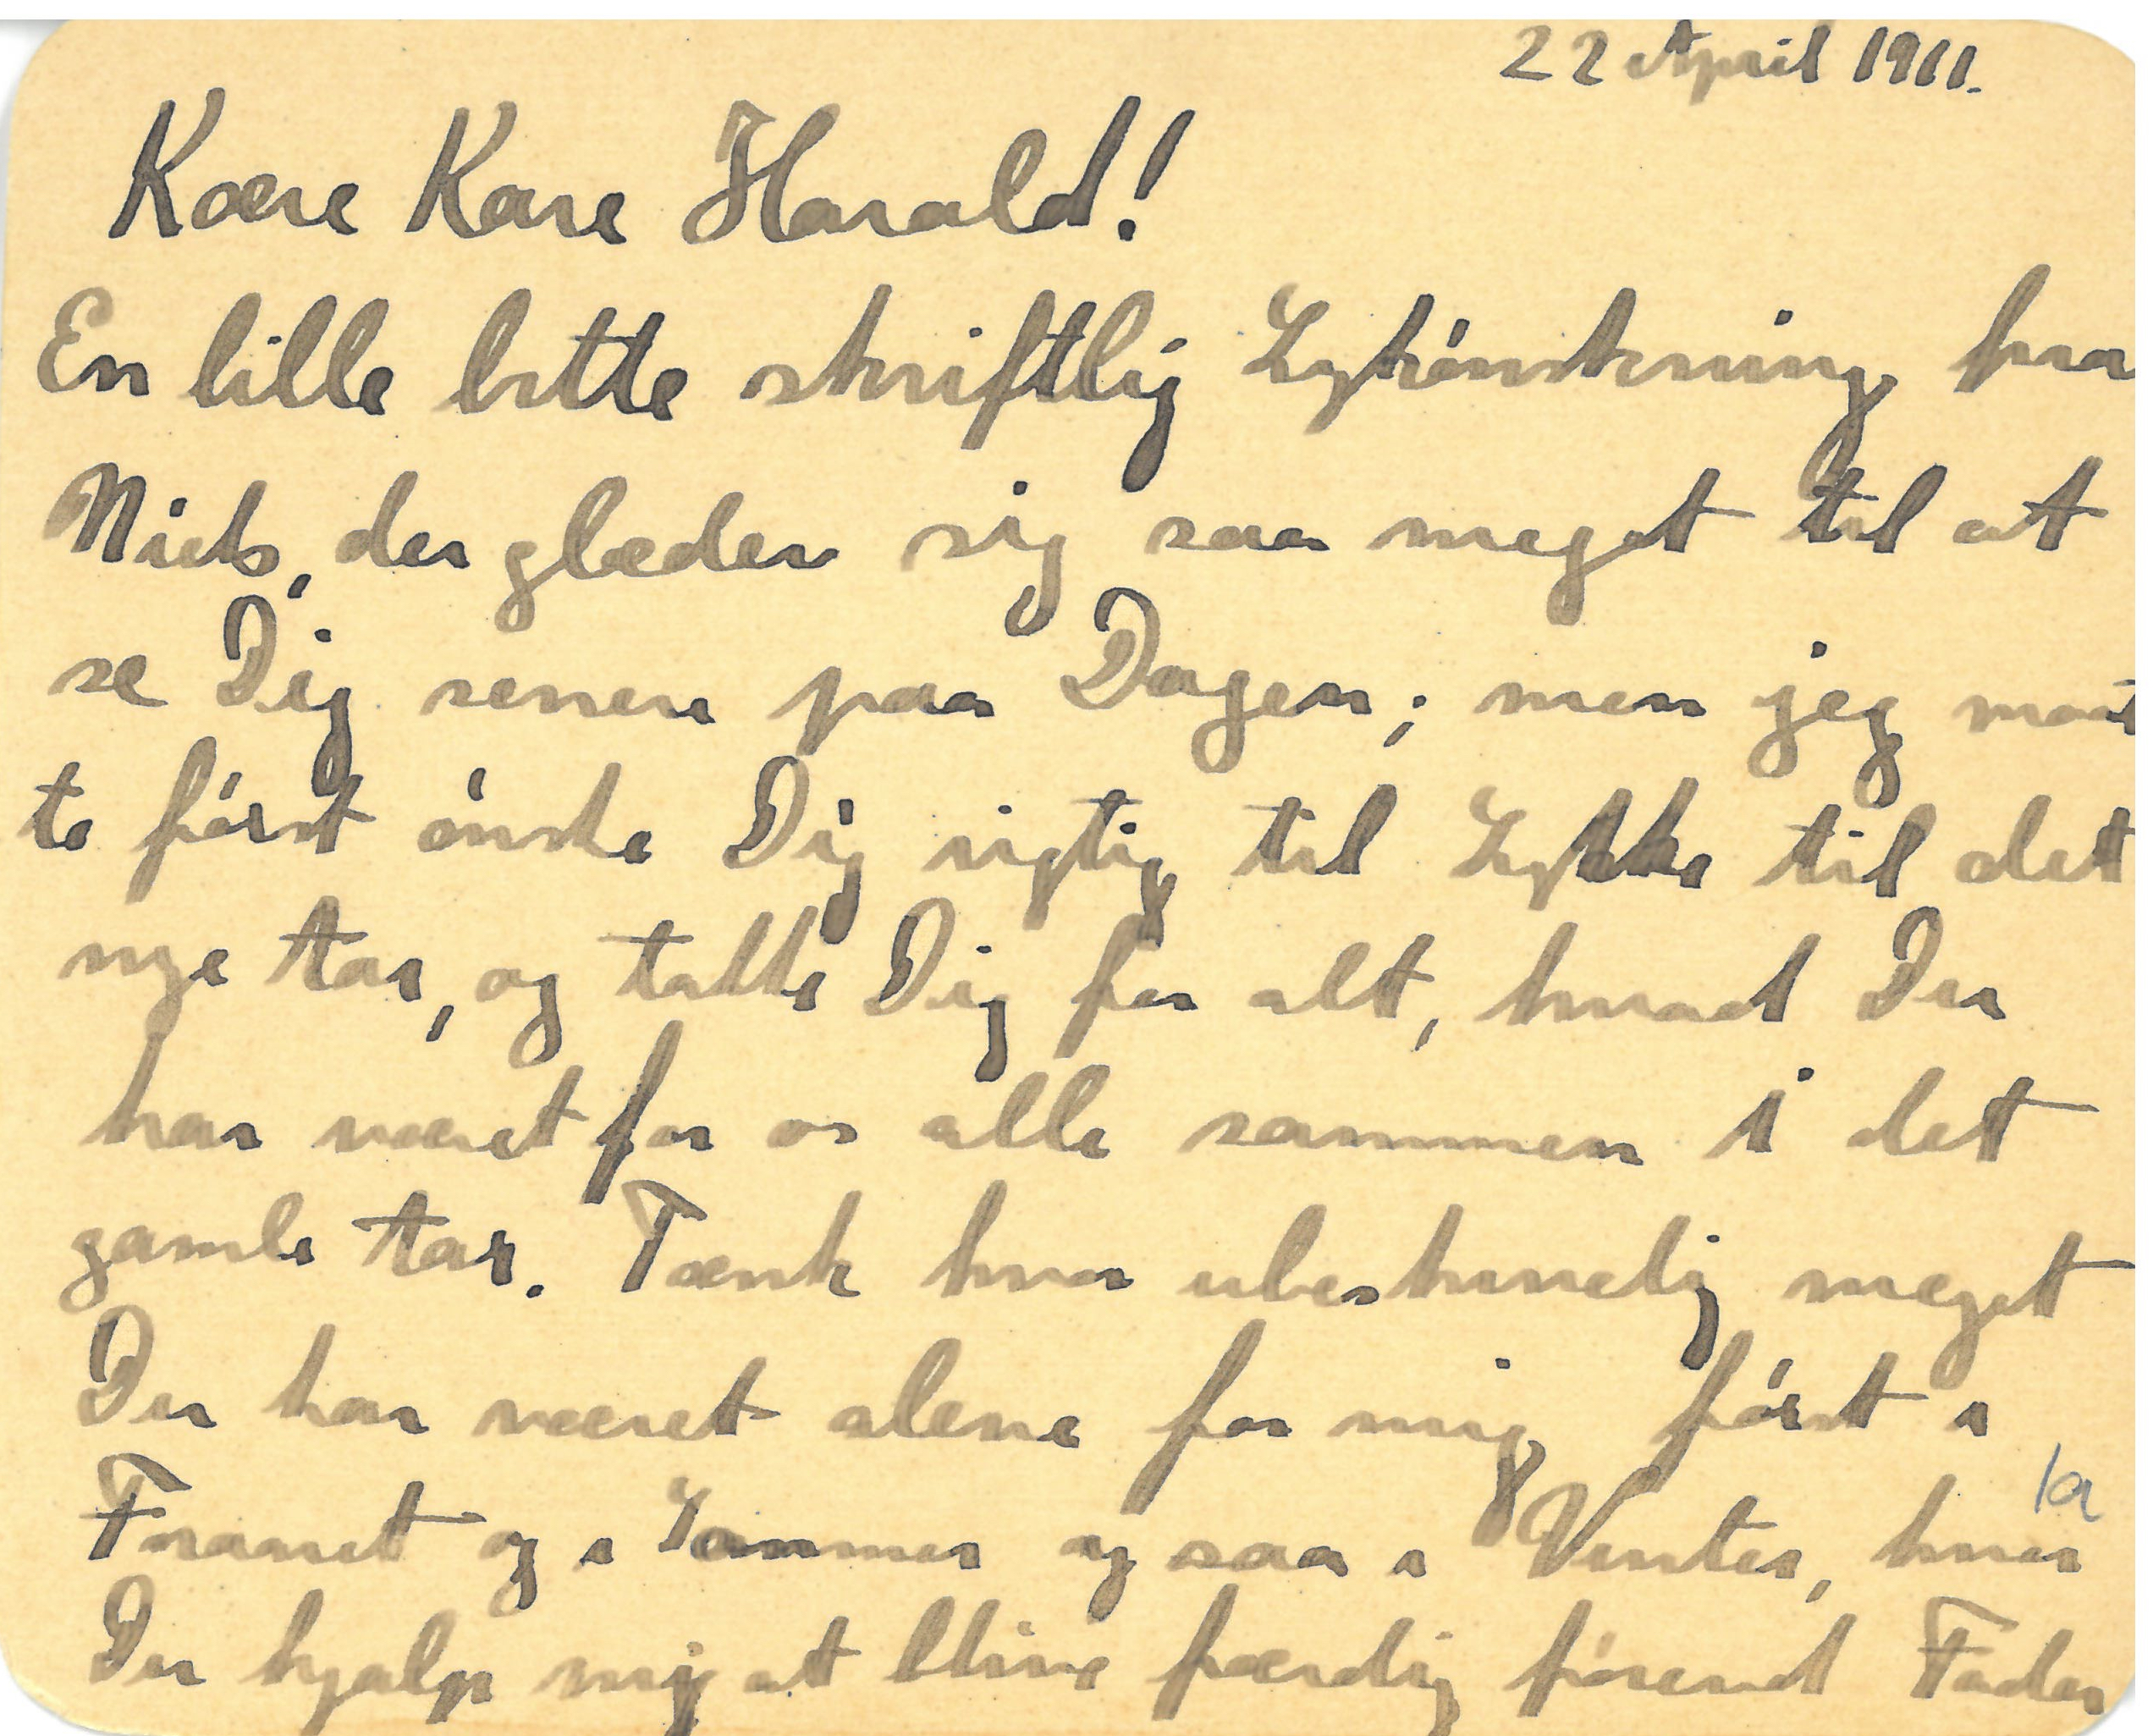 22 April 1911.
Kære Kære Harald!
En lille bitte skriftlig Lykønskning fra
Niels, der glæder sig saa meget til at
se Dig senere paa Dagen; men jeg maat
te først ønske Dig rigtig til Lykke til det
nye Aar, og takke Dig for alt, hvad Du
har været for os alle sammen i det
gamle Aar. Tænk hvor ubeskrivelig meget
Du har været alene for mig først i
Foraaret og i Sommer og saa i Vinter, hvor
1a
Du hjalp mig at blive færdig førend Fader